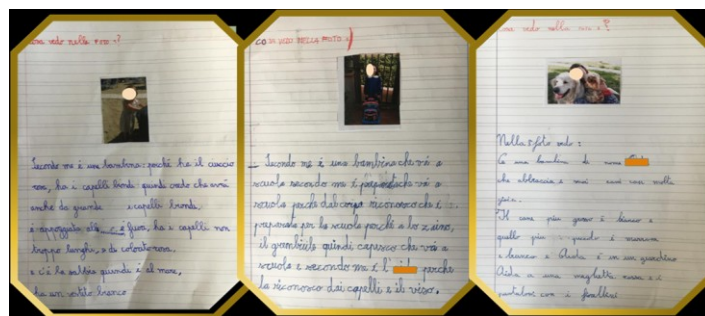 Cosa vedo nella foto?
Secondo me è una bambina: perché ha il ciuccio
rosa, ha i capelli biondi quindi credo che avrà
anche da grande i capelli biondi.
è appoggiata alla è fuori, ha i capelli non
troppo lunghi, e da colorate rosa.
e c'è la sabbia quindi è al mare,
ha un vestito bianco
COSA VEDO NELLA FOTO
Secondo me è una bambina che và a
scuola secondo me è perché và a
scuola perché dal corpo riconosco che è
preparata per la scuola perché a lo zaino,
il grembiule quindi capisco che và a
scuola e secondo me è l' perché
la riconosco dai capelli e il viso.
Cosa vedo nella foto?
Nella foto vedo:
C'è una bambina di nome
che abbraccia i suoi cani nella
Il cane più grosso è bianco e
quello più piccolo è marrone
e bianco e Aida è in un giardino
Aida a una maglietta rossa e i
pantaloni con i fiorellini